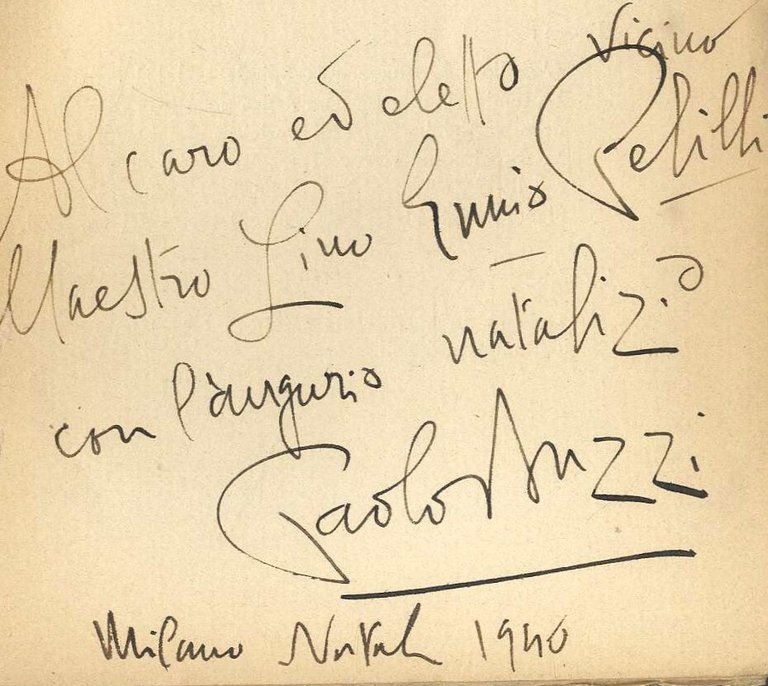 Al caro ed eletto vicino
Maestro Lino Ennio Pelilli
con l'augurio natalizio
Paolo Buzzi
Milano Natale 1940